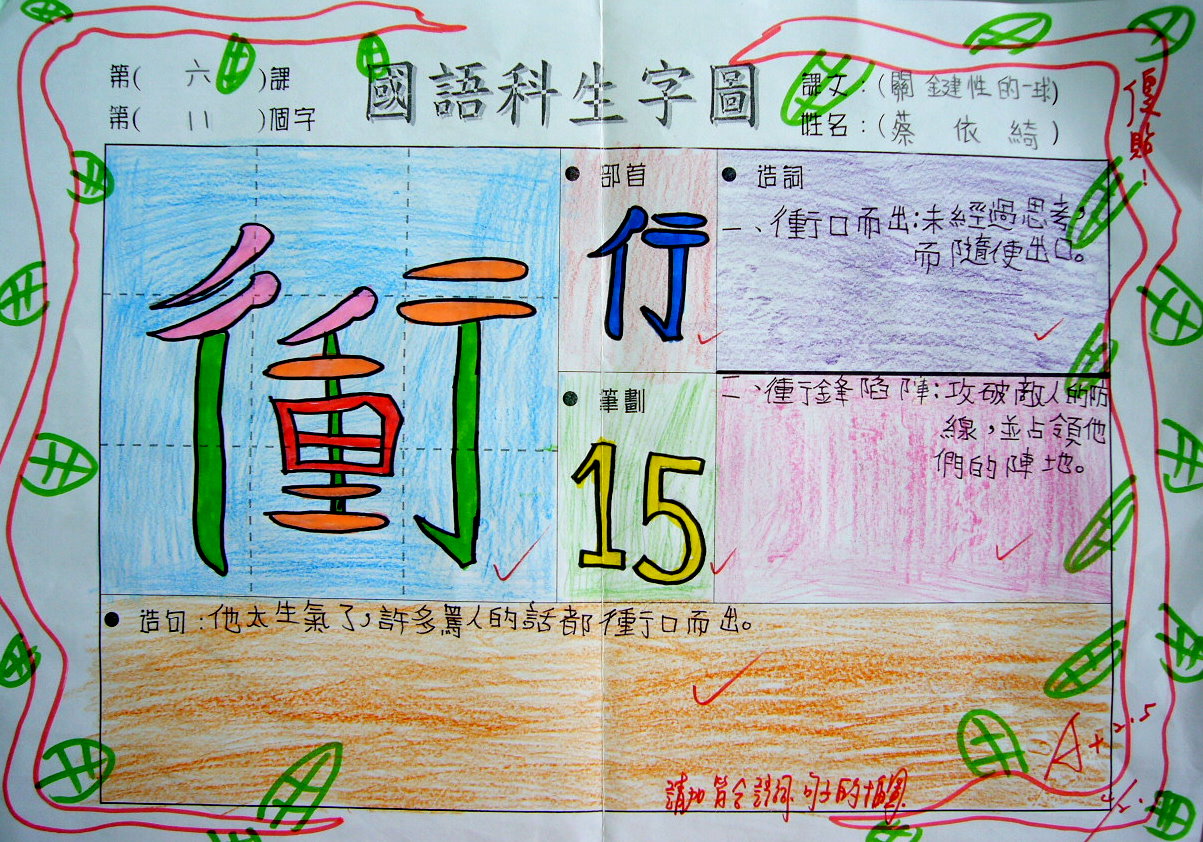 國語科生字圖
第( 六 )課
第( 11 )個字
課文：(關鍵性的一球)
姓名：(蔡依綺)
優
貼！
衝
●部首
行
●筆劃
15
●造詞
一、衝口而出：未經過思考，
而隨便出口。
二、衝鋒陷陣：攻破敵人的防
線，並占領他
們的陣地。
●造句：他太生氣了，許多罵人的話都衝口而出。
A+ 2.5